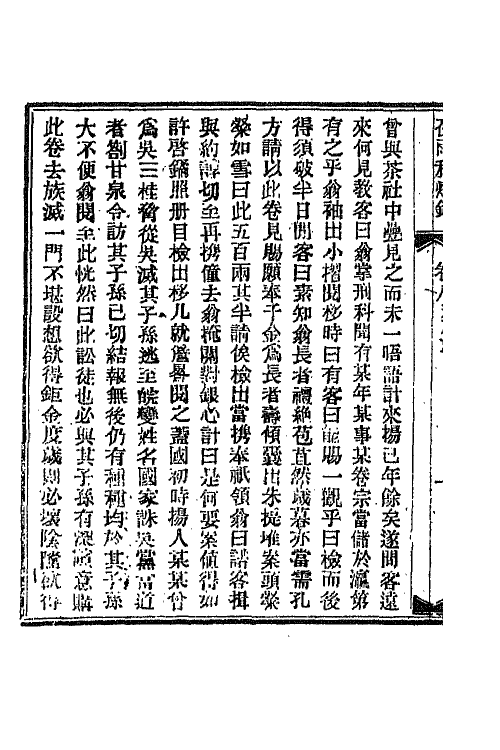 曾與茶社中壘見之而未一晤語計來揚已年餘矣遂問客遠
來何見教客曰翁掌刑科聞有某年某事某卷宗當儲於瀛第
有之乎翁袖出小摺閱移時曰有客曰能賜一觀乎曰檢而後
得須破半日閒客曰素知翁長者禮絶苞苴然歲暮亦當需孔
方請以此卷見賜願奉千金爲長者壽傾囊出朱提堆案頭粲
粲如雪曰此五百兩其半請俟檢出當携奉祇領翁曰諾客揖
與約諄切至再携僮去翁掩關對銀心計曰是何要案值得如
許啓鑰照册目檢出移几就燈畧閱之蓋國初時揚人某某曾
爲吳三桂僞從吳滅其子孫逃至皖變姓名國家誅吳黨當道
者劄甘泉令訪其子孫已切結報無後仍有種種均於其子孫
大不便翁閱至此恍然曰此訟徒也必與其子孫有深意購
此卷去族滅一門不堪設想欲得鉅金度歲則必壞陰隲欲得